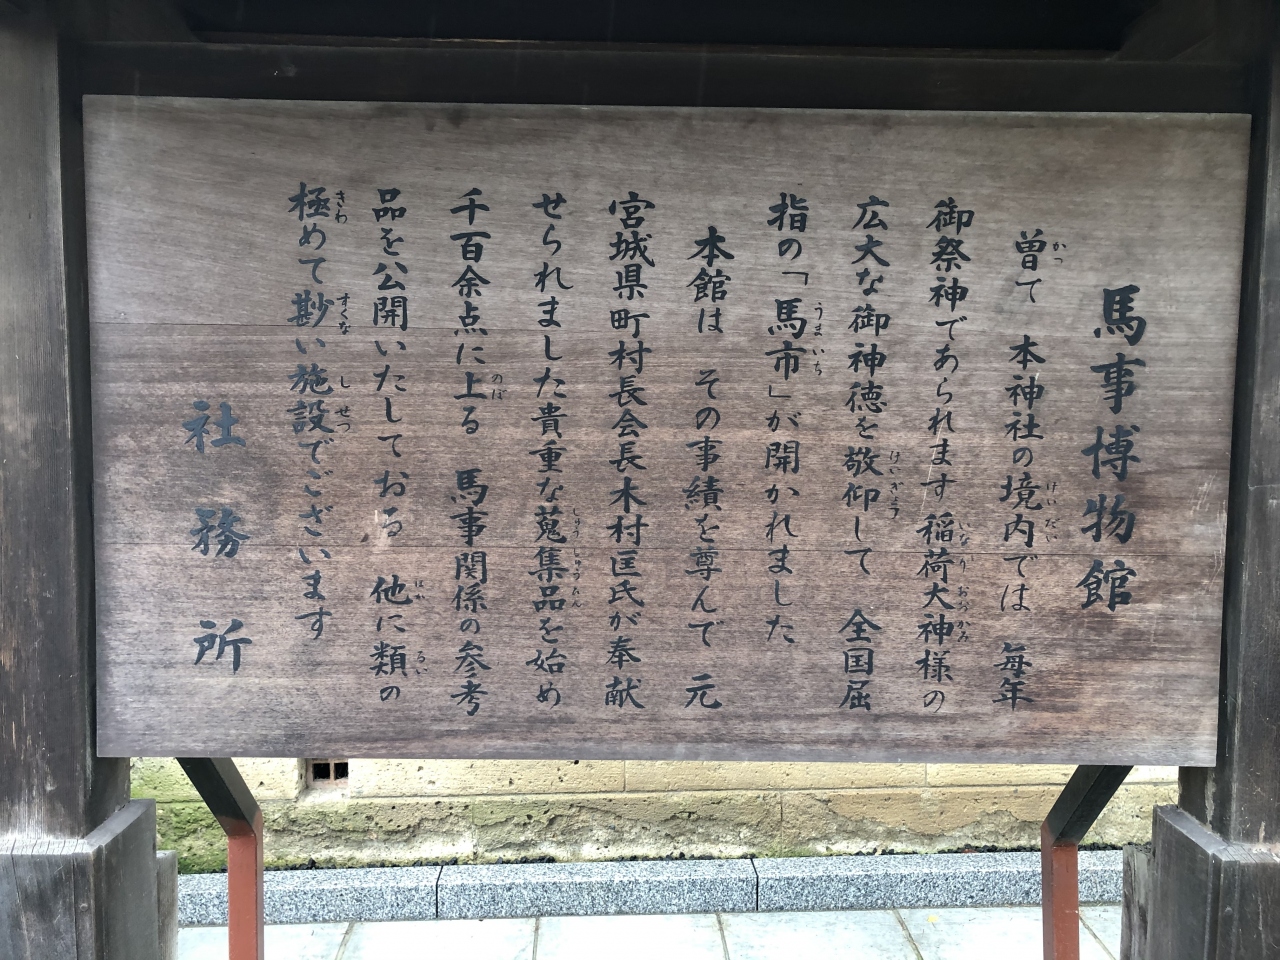 馬事博物館
曽て　本神社の境内では　毎年
御祭神であられます稲荷大神様の
広大な御神徳を敬仰して　全国屈
指の「馬市」が開かれました
本館は　その事績を尊んで　元
宮城県町村長会長木村匡氏が奉献
せられました貴重な蒐集品を始め
千百余点に上る　馬事関係の参考
品を公開いたしておる　他に類の
極めて尠い施設でございます
社務所